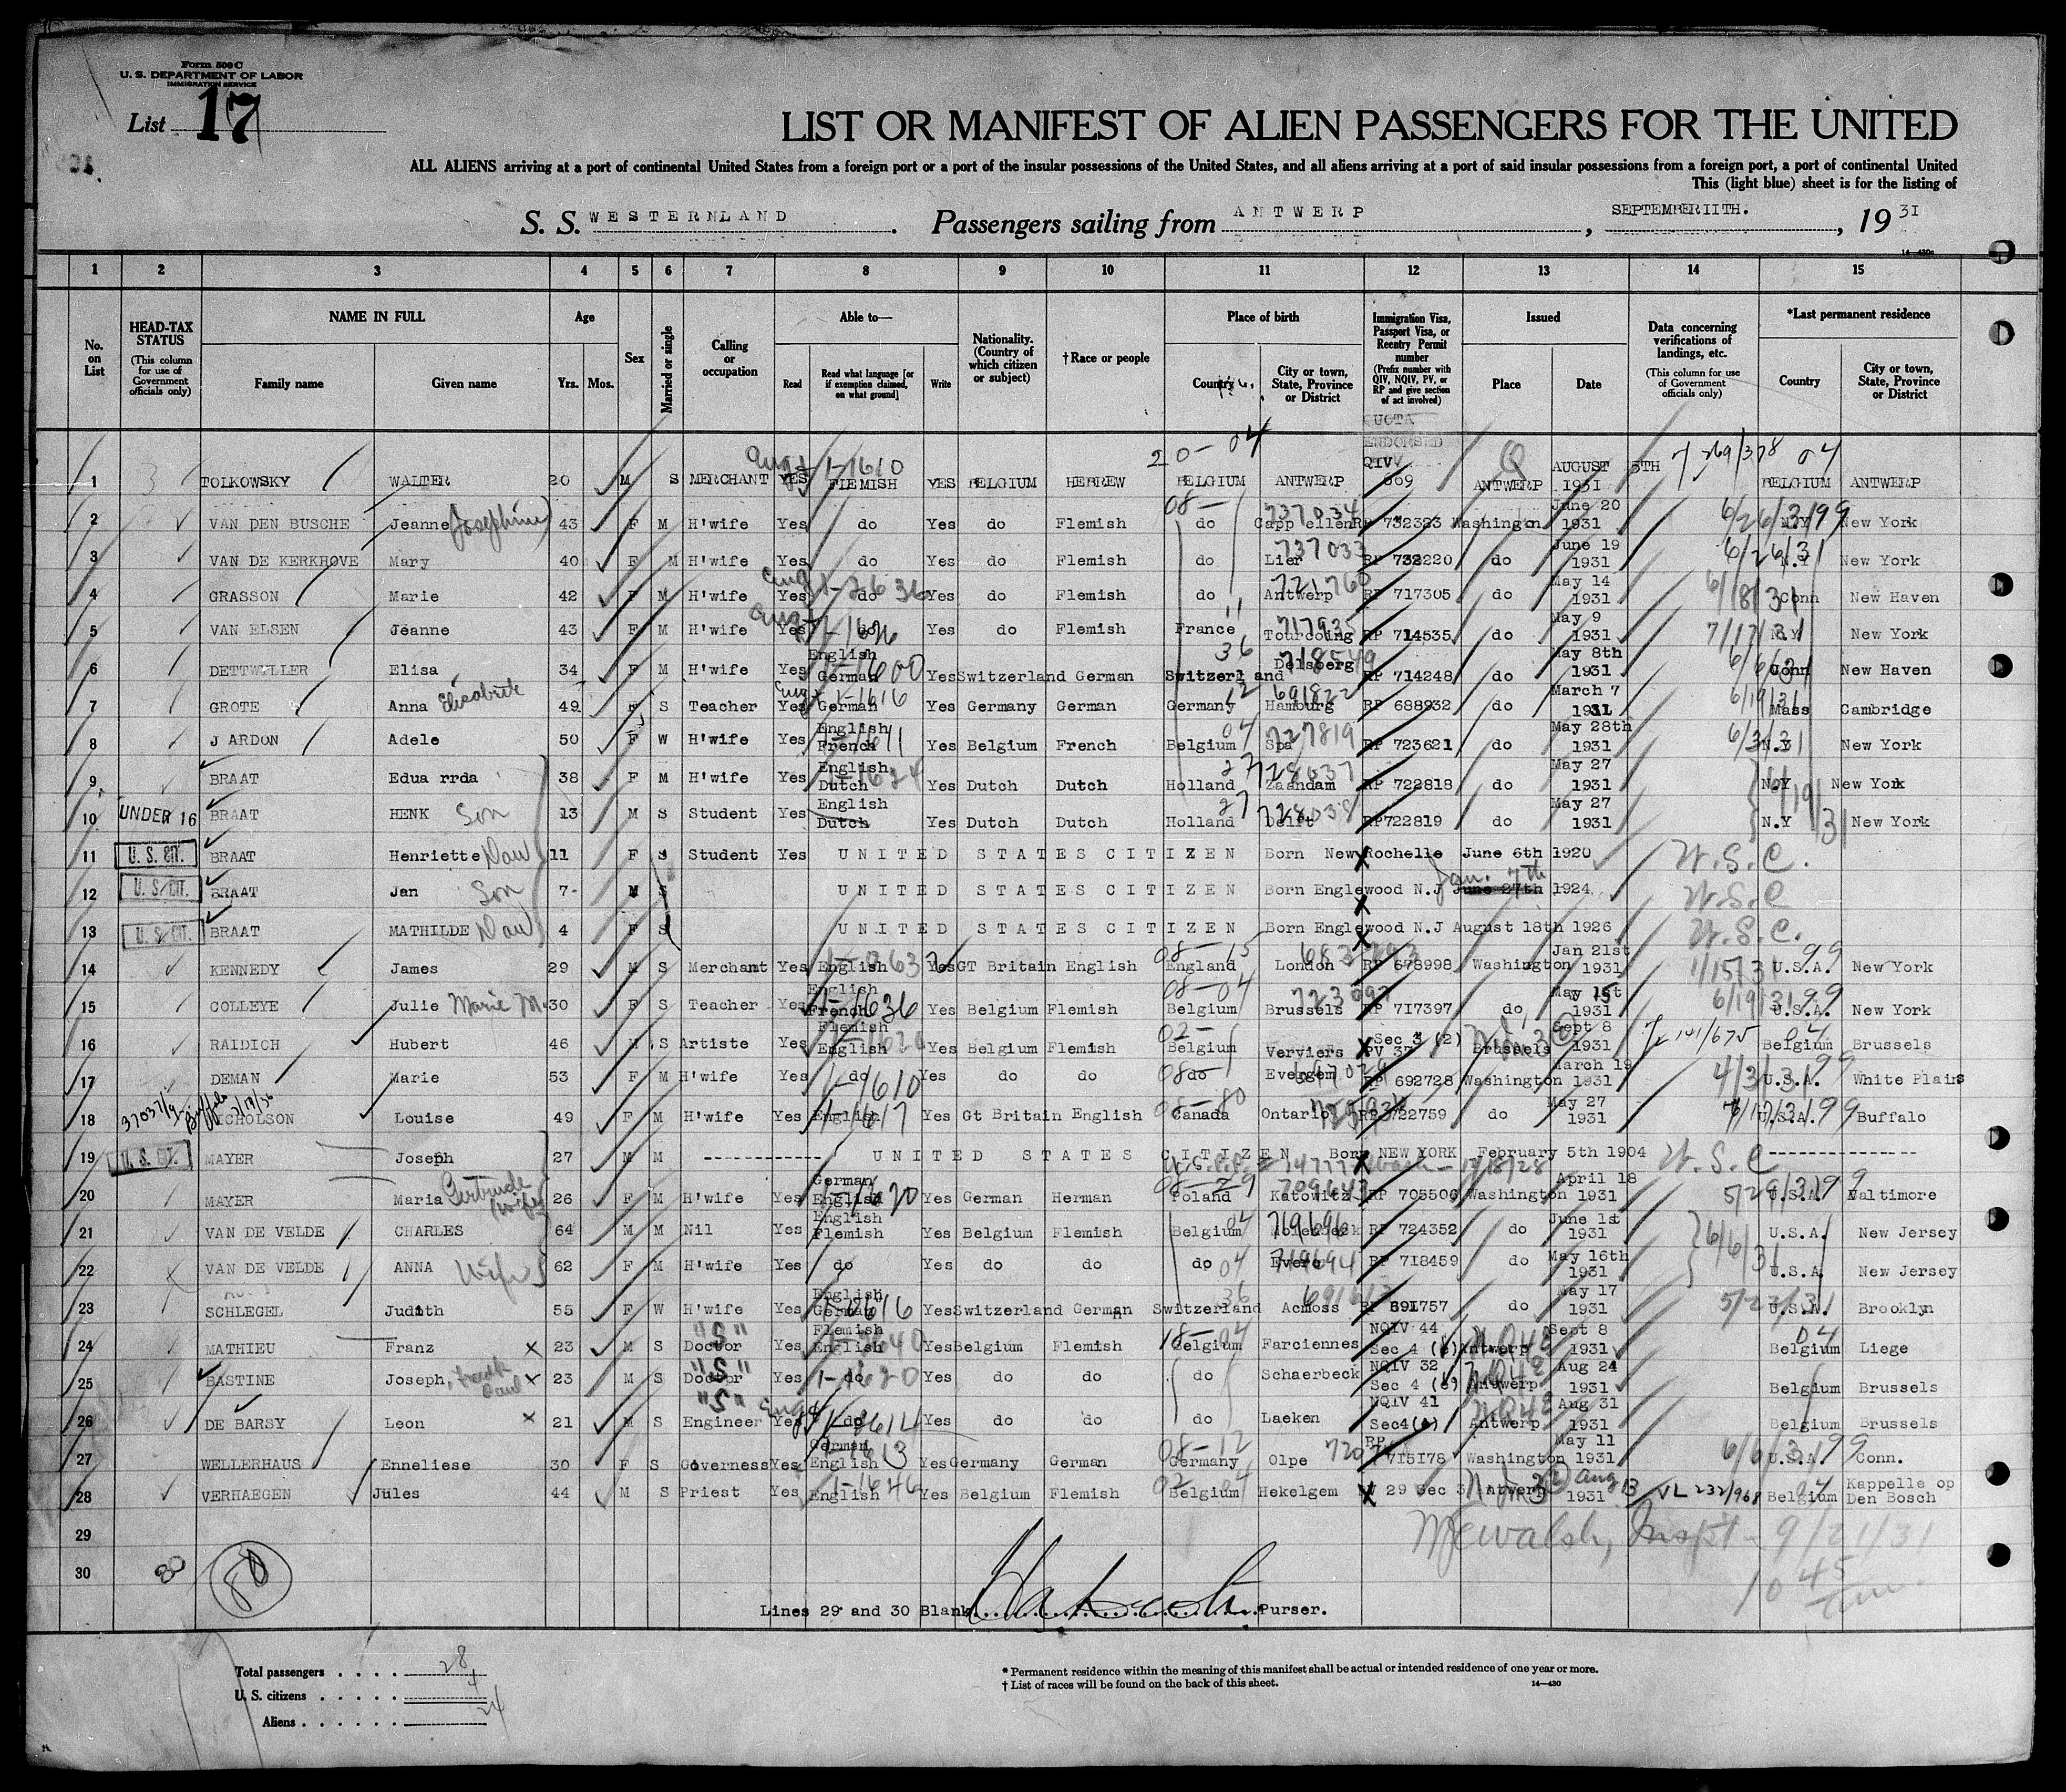 Form 500 C
U. S. DEPARTMENT OF LABOR
IMMIGRATION SERVICE
List 17
LIST OR MANIFEST OF ALIEN PASSENGERS FOR THE UNITED
ALL ALIENS arriving at a port of continental United States from a foreign port or a port of the insular possessions of the United States, and all aliens arriving at a port of said insular possessions from a foreign port, a port of continental United
This (light blue) sheet is for the listing of
S. S. WESTERNLAND. Passengers sailing from ANTWERP, SEPTEMBER 11TH., 19 31
14—430a
1 2 3 4 5 6 7 8 9 10 11 12 13 14 15
No. on List
HEAD-TAX STATUS (This column for use of Government officials only)
NAME IN FULL
Family name Given name
Age
Yrs. Mos.
Sex
Married or single
Calling or occupation
Able to—
Read Read what language [or if exemption claimed, on what ground] Write
Nationality. (Country of which citizen or subject)
†Race or people
Place of birth
Country City or town, State, Province or District
Immigration Visa, Passport Visa, or Reentry Permit number (Prefix number with QIV, NQIV, PV, or RP and give section of act involved)
Issued
Place Date
Data concerning verifications of landings, etc. (This column for use of Government officials only)
*Last permanent residence
Country City or town, State, Province or District
1 TOLKOWSKY WALTER 20 M S MERCHANT YES FLEMISH YES BELGIUM HEBREW BELGIUM ANTWERP QIV 669 ANTWERP AUGUST 5TH 1931 BELGIUM ANTWERP
2 VAN DEN BUSCHE Jeanne Josephine 43 F M H'wife Yes do Yes do Flemish do Cappellen RP 732323 Washington June 20 1931 6/26/31 N.Y New York
3 VAN DE KERKHOVE Mary 40 F M H'wife Yes do Yes do Flemish do Lier 737033 RP 732220 do June 19 1931 6/26/31 N.Y New York
4 GRASSON Marie 42 F M H'wife Yes do Yes do Flemish do Antwerp 721760 RP 717305 do May 14 1931 6/18/31 Conn New Haven
5 VAN ELSEN Jeanne 43 F M H'wife Yes do Yes do Flemish France Tourcoing 717935 RP 714535 do May 9 1931 7/17/31 N.Y New York
6 DETTWYLLER Elisa 34 F M H'wife Yes English German Yes Switzerland German Switzerland Delsberg RP 714248 do May 8th 1931 Conn New Haven
7 GROTE Anna 49 F S Teacher Yes German Yes Germany German Germany Hamburg 691822 RP 688932 do March 7 1931 6/19/31 Mass Cambridge
8 JARDON Adele 50 F W H'wife Yes English French Yes Belgium French Belgium Spa 727819 RP 723621 do May 28th 1931 N.Y New York
9 BRAAT Edua rrda 38 F M H'wife Yes English Dutch Yes Dutch Dutch Holland Zaandam 728037 RP 722818 do May 27 1931 N.Y New York
10 UNDER 16 BRAAT HENK Son 13 M S Student Yes English Dutch Yes Dutch Dutch Holland Delft 728038 RP722819 do May 27 1931 N.Y New York
11 U. S. CIT. BRAAT Henriette Dau 11 F S Student Yes UNITED STATES CITIZEN Born New Rochelle June 6th 1920 U.S.C.
12 U. S. CIT. BRAAT Jan Son 7- M S UNITED STATES CITIZEN Born Englewood N.J June 27th Jan. 7th 1924 U.S.C
13 U. S. CIT. BRAAT MATHILDE Dau 4 F S UNITED STATES CITIZEN Born Englewood N.J August 18th 1926 U.S.C.
14 KENNEDY James 29 M S Merchant Yes English Yes GT Britain English England London RP 678998 Washington Jan 21st 1931 1/15/31 U.S.A. New York
15 COLLEYE Julie Marie M. 30 F S Teacher Yes English French Yes Belgium Flemish Belgium Brussels RP 717397 do May 15 1931 6/19/31 U.S.A. New York
16 RAIDICH Hubert 46 M S Artiste Yes Flemish English Yes Belgium Flemish Belgium Verviers Sec 3 (2) PV 37 Brussels Sept 8 1931 Belgium Brussels
17 DEMAN Marie 53 F M H'wife Yes do Yes do do do Evergem RP 692728 Washington March 19 1931 U.S.A. White Plains
18 NICHOLSON Louise 49 F M H'wife Yes English Yes Gt Britain English Canada Ontario RP 722759 do May 27 1931 U.S.A. Buffalo
19 U. S. CIT. MAYER Joseph 27 M M ------------- UNITED STATES CITIZEN Born NEW YORK February 5th 1904 U.S.C ----------------
20 MAYER Maria Gertrude wife 26 F M H'wife Yes German English Yes German Herman Poland Katowitz RP 705506 Washington April 18 1931 5/29/31 U.S.A. Baltimore
21 VAN DE VELDE CHARLES 64 M M Nil Yes English Flemish Yes Belgium Flemish Belgium 719696 RP 724352 do June 1st 1931 6/6/31 U.S.A. New Jersey
22 VAN DE VELDE ANNA Wife 62 F M H'wife Yes do Yes do do do 719694 RP 718459 do May 16th 1931 U.S.A New Jersey
23 SCHLEGEL Judith 55 F W H'wife Yes English German Yes Switzerland German Switzerland Acmoss RP 691757 do May 17 1931 U.S.A. Brooklyn
24 MATHIEU Franz x 23 M S "S" Doctor Yes Flemish English Yes Belgium Flemish Belgium Farciennes NQIV 44 Sec 4 (e) Antwerp Sept 8 1931 Belgium Liege
25 BASTINE Joseph, x 23 M S "S" Doctor Yes do Yes do do do Schaerbeck NQIV 32 Sec 4 (e) Antwerp Aug 24 1931 Belgium Brussels
26 DE BARSY Leon x 21 M S "S" Engineer Yes do Yes do do do Laeken NQIV 41 Sec4(e) Antwerp Aug 31 1931 Belgium Brussels
27 WELLERHAUS Enneliese 30 F S Governess Yes German English Yes Germany German Germany Olpe RP 715178 Washington May 11 1931 6/6/31 U.S.A. Conn.
28 VERHAEGEN Jules 44 M S Priest Yes English Yes Belgium Flemish Belgium Hekelgem 29 Sec 3 Antwerp Aug 13 1931 VL 232/968 Belgium Kappelle op Den Bosch
29
30
Inspt - 9/21/31
10 45 am.
Lines 29 and 30 Blank. Purser.
Total passengers . . . . 28
U. S. citizens . . . . . 4
Aliens . . . . . . 24
* Permanent residence within the meaning of this manifest shall be actual or intended residence of one year or more.
† List of races will be found on the back of this sheet.
14—430